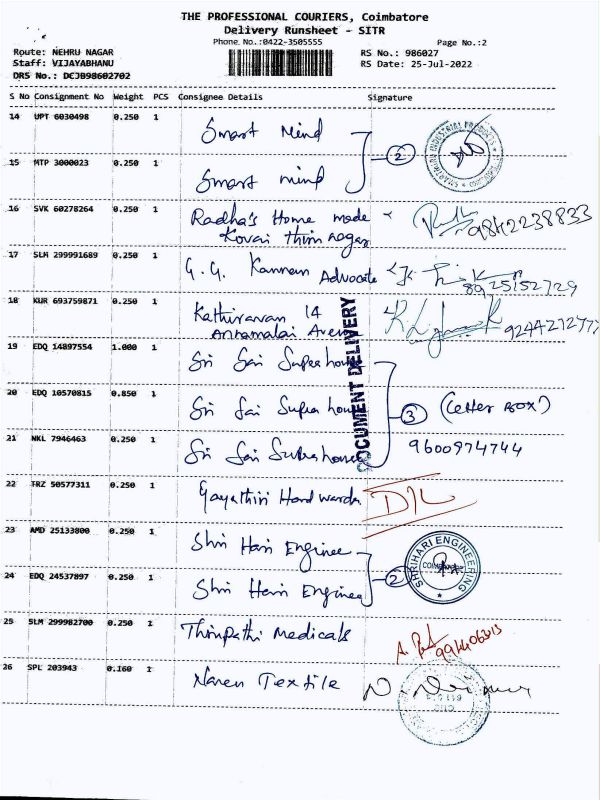 THE PROFESSIONAL COURIERS, Coimbatore
Delivery Runsheet - SITR
Phone No.:0422-3505555 Page No.:2
Route: NEHRU NAGAR RS No.: 986027
Staff: VIJAYABHANU RS Date: 25-Jul-2022
DRS No.: DCJB98602702
S No Consignment No Weight PCS Consignee Details Signature
14 UPT 6030498 0.250 1 Smart Mind
2
15 MTP 3000023 0.250 1 Smart mind
16 SVK 60278264 0.250 1 Radha's Home made
Kovai thirunagar 9842238833
17 SLM 299991689 0.250 1 G.G. Kannan Advocate
8925152729
18 KUR 693759871 0.250 1 Kathiravan 14
Annamalai Avenue
DOCUMENT DELIVERY
19 EDQ 14897554 1.000 1 Sri Sai Supra house
20 EDQ 10570815 0.850 1 Sri Sai Supra house 3 (Letter Box)
21 NKL 7946463 0.250 1 Sri Sai Supra house 9600974744
22 TRZ 50577311 0.250 1 Gayathiri Hardwards D/L
23 AMD 25133800 0.250 1 Shri Hari Enginee
SHRIHARI ENGINEERING
2
24 EDQ 24537897 0.250 1 Shri Hari Enginee
25 SLM 299982700 0.250 1 Thirupathi Medicals
26 SPL 203943 0.160 1 Naren Textile